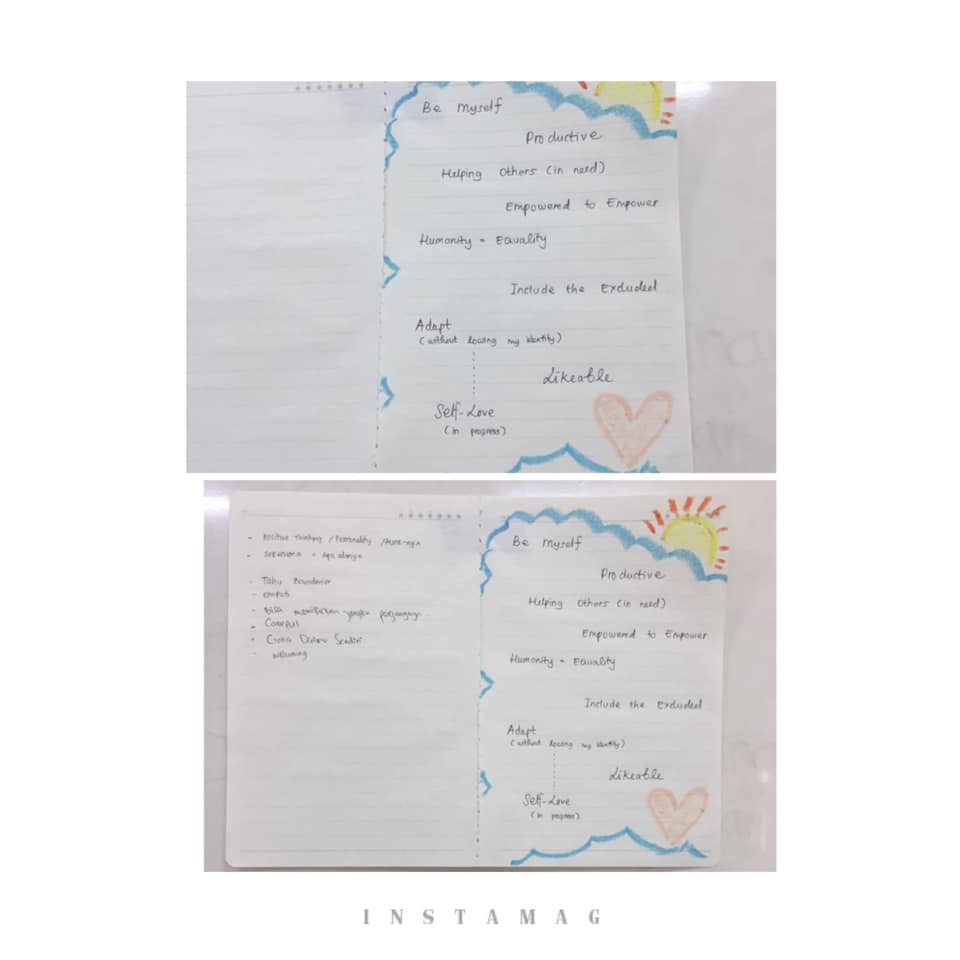 Be myself
Productive
Helping Others (in need)
Empowered to Empower
Humanity = Equality
Include the Excluded
Adapt
(without losing my identity)
Likeable
Self-Love
(in progress)
- Positive Thinking / Personality
- apa adanya
- Tahu Boundaries
- empati
- Bisa
- Careful
- Diri Sendiri
- welcoming
Be myself
Productive
Helping Others (in need)
Empowered to Empower
Humanity = Equality
Include the Excluded
Adapt
(without losing my identity)
Likeable
Self-Love
(in progress)
INSTAMAG